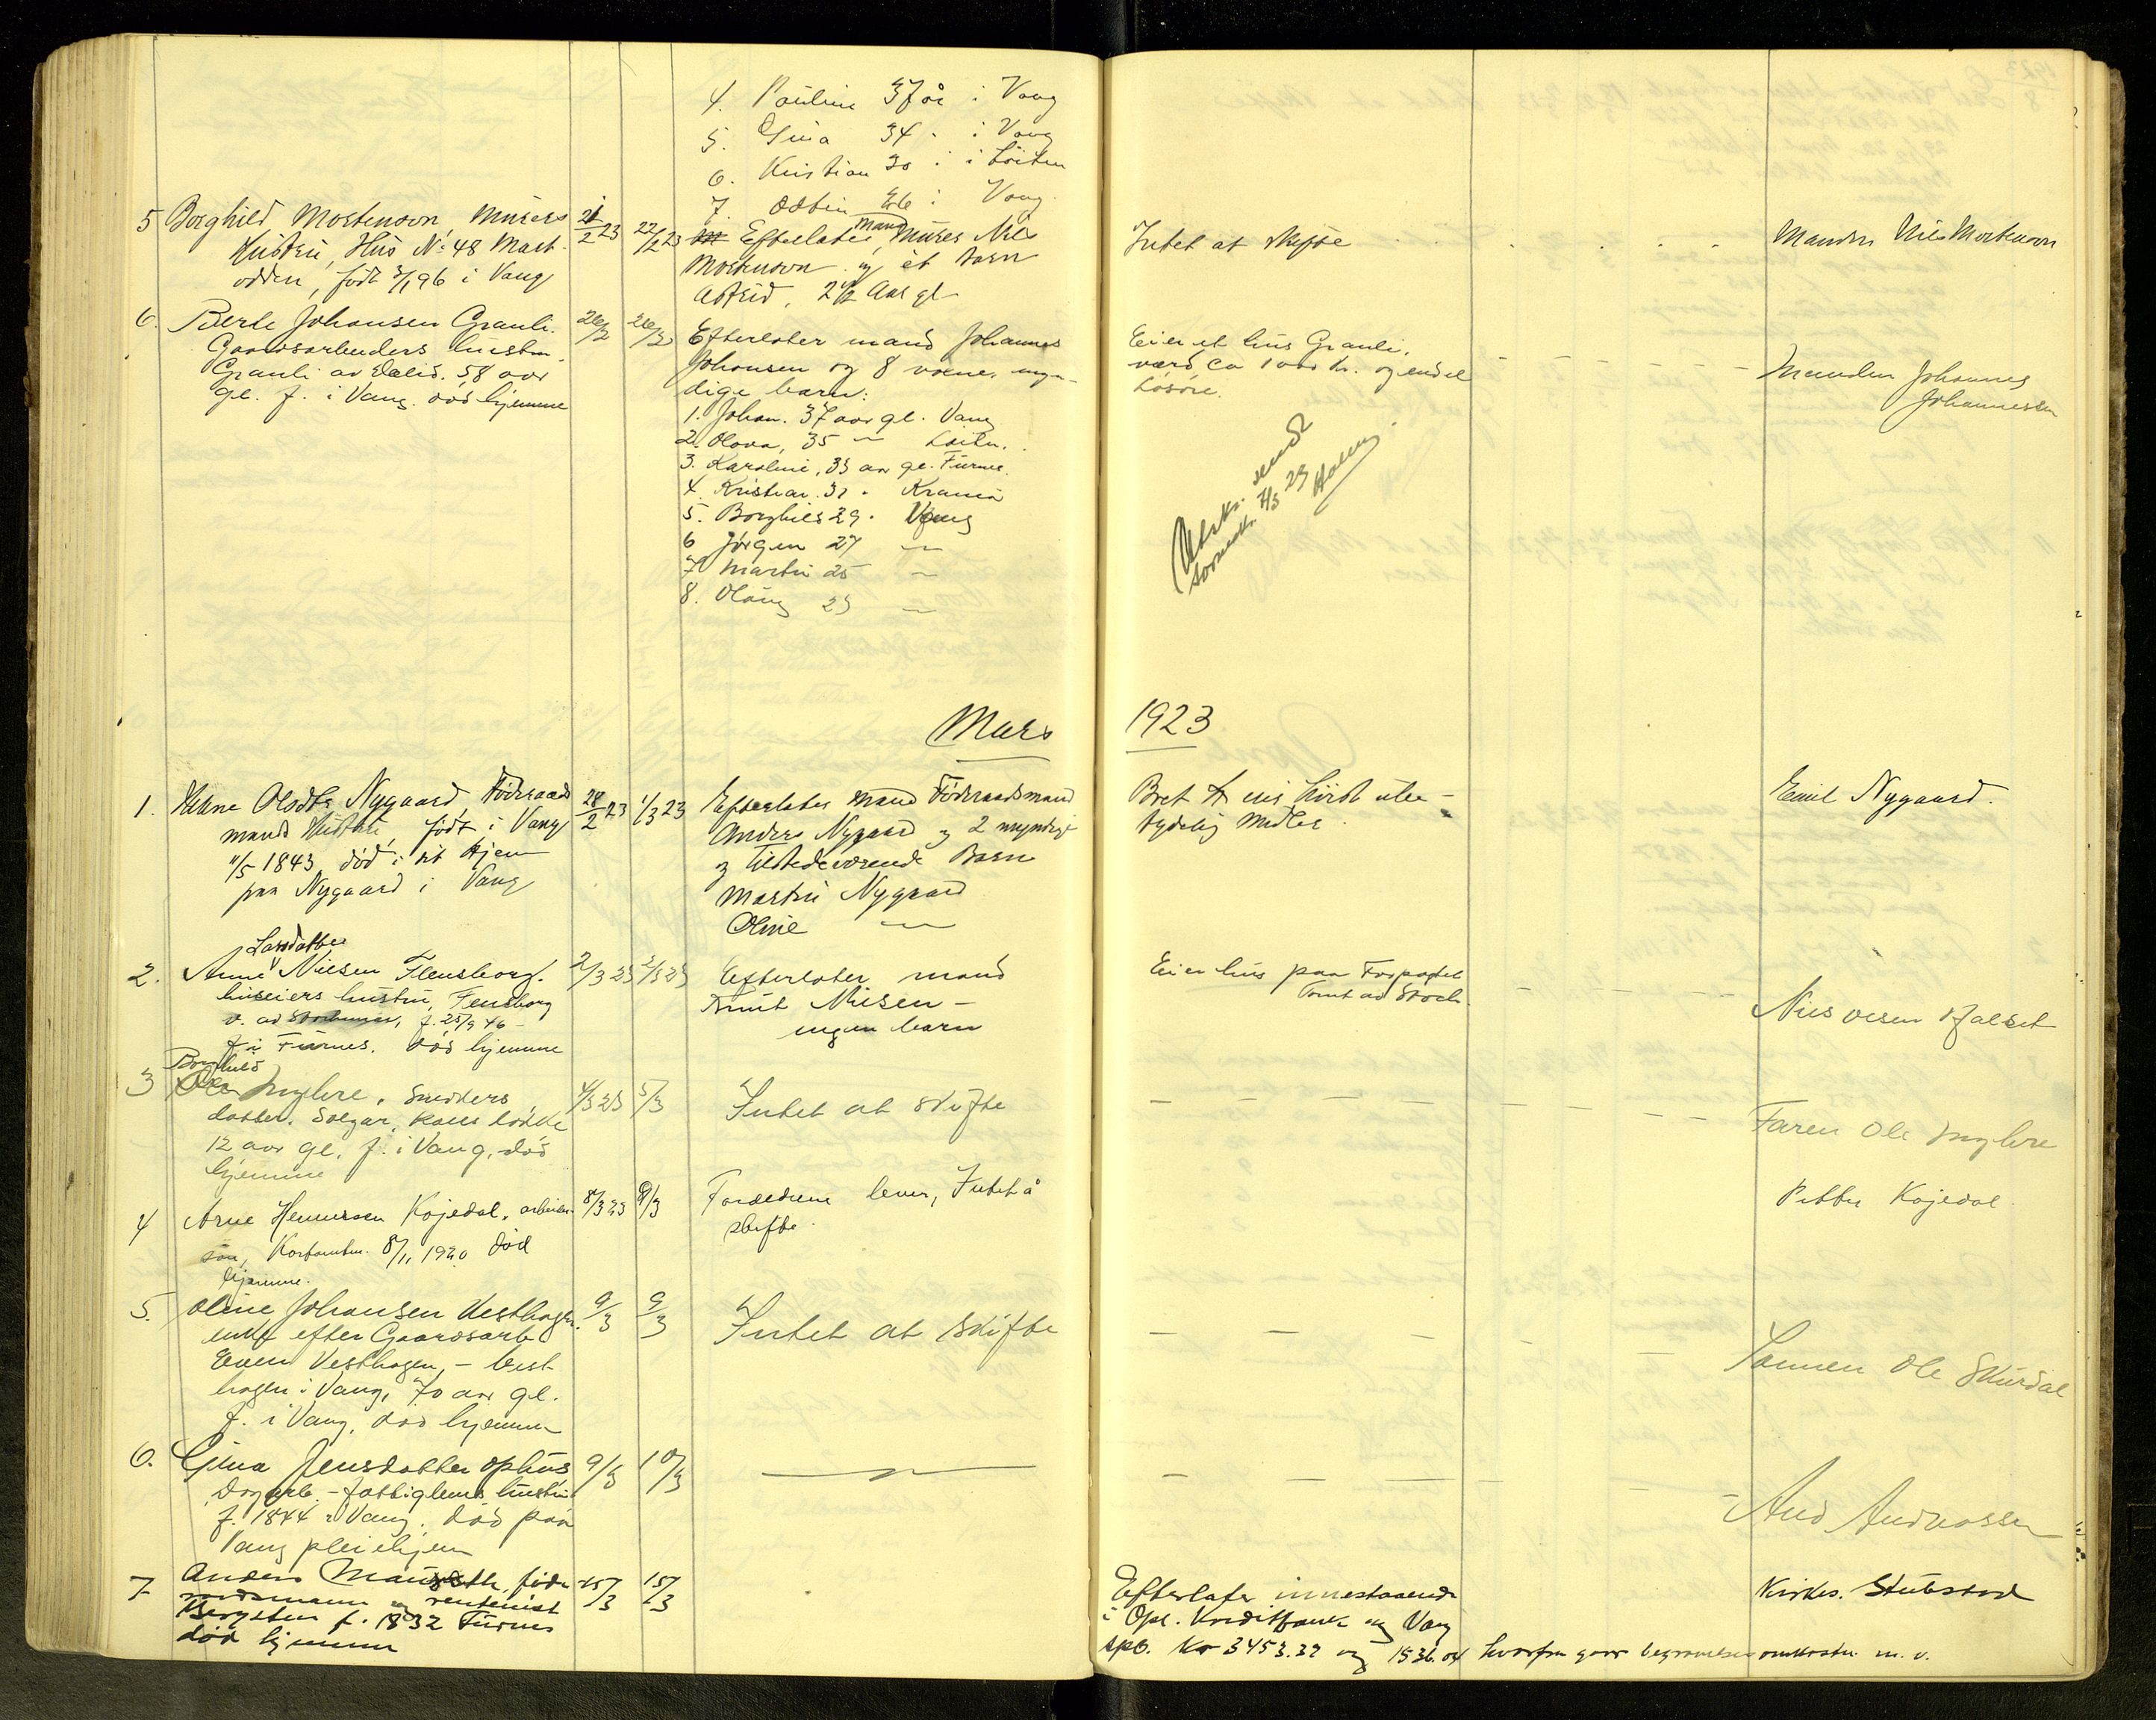 4. Pauline 37 år i Vang
5. Gina 34 " i Vang
6. Kristian 30 " i Löiten
7. Odbin i Vang
5 Borghild Mortensson, Murers
Hustru, Hus No 48 Mart-
odden, født 3/1 96 i Vang
21/2 23
22/2 23
Efterlater Mand Murer Nils
Mortensson og et barn
Astrid, 2 1/2 Aar gl
Intet at skifte
Manden Nils Mortensson
6. Berte Johansen Granli.
Gaardsarbeiders hustru.
Granli av Dalid. 58 aar
gl. f. i Vang. död hjemme
26/2
26/2
Efterlater mand Johannes
Johansen og 8 voxne, myn-
dige barn:
1. Johan. 37 aar gl. Vang
2. Olava, 35 — Löiten.
3. Karoline, 33 aar gl. Furnes.
4. Kristian. 31 " Krania
5. Borghild 29 " Vang
6 Jörgen 27 —
7 Martin 25 —
8. Olaug 23 —
Eier et hus Granli,
værd ca 1000 kr. og endel
Lösöre.
Utskr. sendt
sorenskr. 7/3 23
Manden Johannes
Johannessen
Mars 1923
1. Helene Olsdtr Nygaard, Föderaads
mands Hustru, født i Vang
11/5 1843, død i sit Hjem
paa Nygaard i Vang
28/2 23
1/3 23
Efterlater Mand Föderaadsmand
Anders Nygaard og 2 myndige
og tilstedeværende Barn
Martin Nygaard
Oline —
Bret til sin Livst ube-
tydelig Midler.
Emil Nygaard.
Larsdatter
2. Anne Nilsen Flensborg.
huseiers hustru, Flensborg
v. av f. 25/9 46 -
f. i Furnes. död hjemme
2/3 23
2/3 23
Efterlater mand
Knut Nilsen -
ingen barn
Eier hus paa Forpagtet
Tomt av Stork
Nils Olsen Kjalset
Borghild
3 Myhre, Smeders
datter. Solgar,
12 aar gl, f. i Vang, död
hjemme
4/3 23
5/3
Intet at skifte
Faren Ole Myhre
4 Arne Hennersen Kojedal, arbeider-
sön, 8/11 1920 død
hjemme.
8/3 23
9/3
Foreldrene lever, Intet å
skifte.
Petter Kojedal
5. Oline Johansen Vesthagen.
enke efter Gaardsarb
Even Vesthagen, - Vest
hagen i Vang, 70 aar gl.
f. i Vang, död hjemme
9/3
9/3
Intet at skifte
Sönnen Ole Skurdal
6. Gina Jensdatter Ophus
Dagarb. - fattiglems hustru
f. 1844 i Vang. död paa
Vang pleiehjem
9/3
10/3
— " —
And Andreassen
7 Anders Maurseth, føde-
raadsmann og rentenist
Bergsten f. 1832 Furnes
død hjemme
15/3
15/3
Efterlater innestaaende
i Opl. Kreditbank og Vang
spb. Kr 3453.32 og 1536.04 hvorfra gaar begravelsesomkostn. m. v.
Kirkes. Stubstad